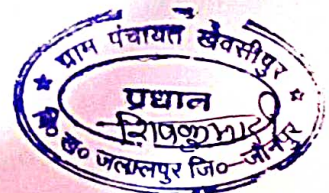 ग्राम पंचायत खेवसीपुर
प्रधान
शिवकुमार
वि० ख० जलालपुर जि०-जौनपुर